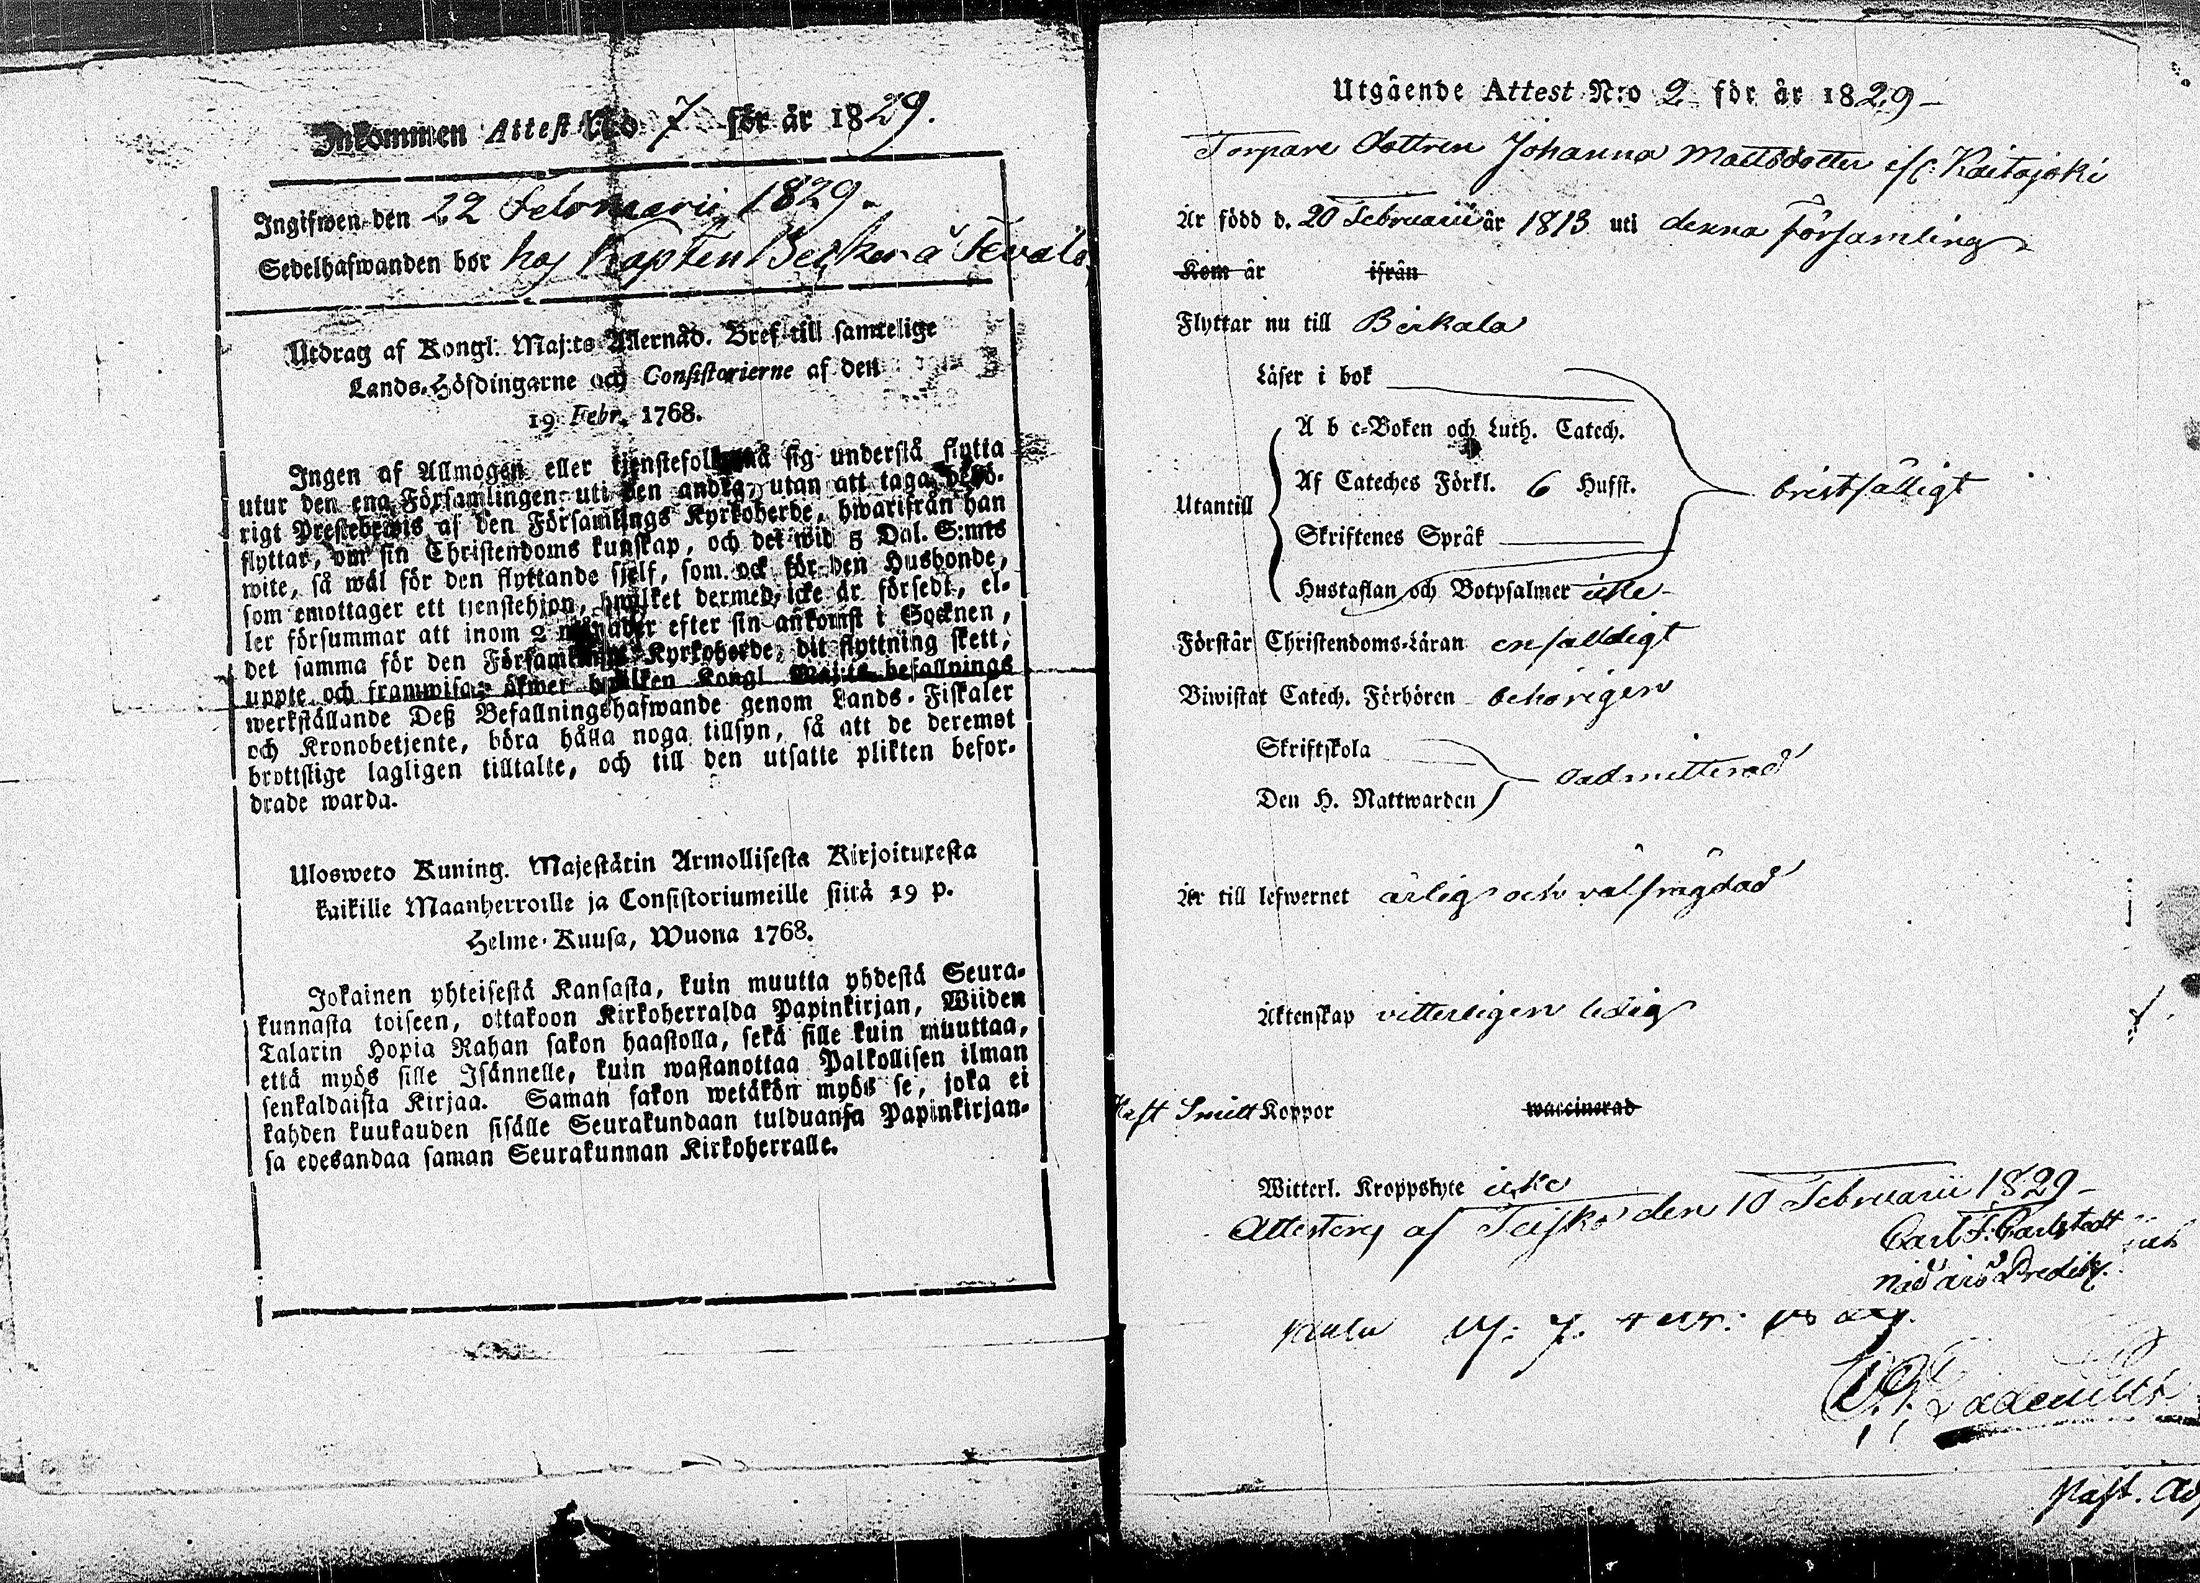 Inkommen Attest N:o 7 för år 1829.
Ingifwen den 22 Februarii 1829.
Sedelhafwanden bor hos Kapten Becker å
Utdrag af Kongl. Maj:ts Allernåd. Bref till samtelige
Lands-Höfdingarne och Consistorierne af den
19 Febr. 1768.
Ingen af Allmogen eller tjenstefolk må sig understå flytta
utur den ena Församlingen uti den andra, utan att taga behö-
rigt Prestebewis af den Församlings Kyrkoherde, hwarifrån han
flyttar, om sin Christendoms kunskap, och det wid 5 Dal. S:mts
wite, så wäl för den flyttande sjelf, som ock för den Husbonde,
som emottager ett tjenstehjon, hwilket dermed icke är försedt, el-
ler försummar att inom 2 månader efter sin ankomst i Socknen,
det samma för den Församlings Kyrkoherde, dit flyttning skett,
uppte och framwisa; öfwer hwilken Kongl. Maj:ts befallnings
werkställande Deß Befallningshafwande genom Lands-Fiskaler
och Kronobetjente, böra hålla noga tillsyn, så att de deremot
brottslige lagligen tilltalte, och till den utsatte plikten befor-
drade warda.
Ulosweto Kuning. Majestätin Armollisesta Kirjoituxesta
kaikille Maanherroille ja Consistoriumeille siitä 19 p.
Helme-Kuusa, Wuona 1768.
Jokainen yhteisestä Kansasta, kuin muutta yhdestä Seura-
kunnasta toiseen, ottakoon Kirkoherralda Papinkirjan, Wiiden
Talarin Hopia Rahan sakon haastolla, sekä sille kuin muuttaa,
että myös sille Isännelle, kuin wastanottaa Palkollisen ilman
senkaldaista Kirjaa. Saman sakon wetäkön myös se, joka ei
kahden kuukauden sisälle Seurakundaan tulduansa Papinkirjan-
sa edesandaa saman Seurakunnan Kirkoherralle.
Utgående Attest N:o 2 för år 1829
Torpare dottren Johanna Mattsdotter ifr: Kaitajoki
Är född d. 20 Februarii år 1813 uti denna Församling
Kom år ifrån
Flyttar nu till Birkala
Läser i bok
A b c-Boken och Luth. Catech.
Af Cateches Förkl. 6 Hufst.
bristfälligt
Utantill
Skriftenes Språk
Hustaflan och Botpsalmer icke
Förstår Christendoms-Läran enfaldigt
Biwistat Catech. Förhören behörigen
Skriftskola
oadmitterad
Den H. Nattwarden
Är till lefwernet ärlig och välfrägdad
Äktenskap vitterligen ledig
Haft Smitt Koppor waccinerad
Witterl. Kroppslyte icke
Attesteras af Teisko den 10 Februarii 1829
Carl F. Carlstedt
Nåd års Predik.
Past. Adj